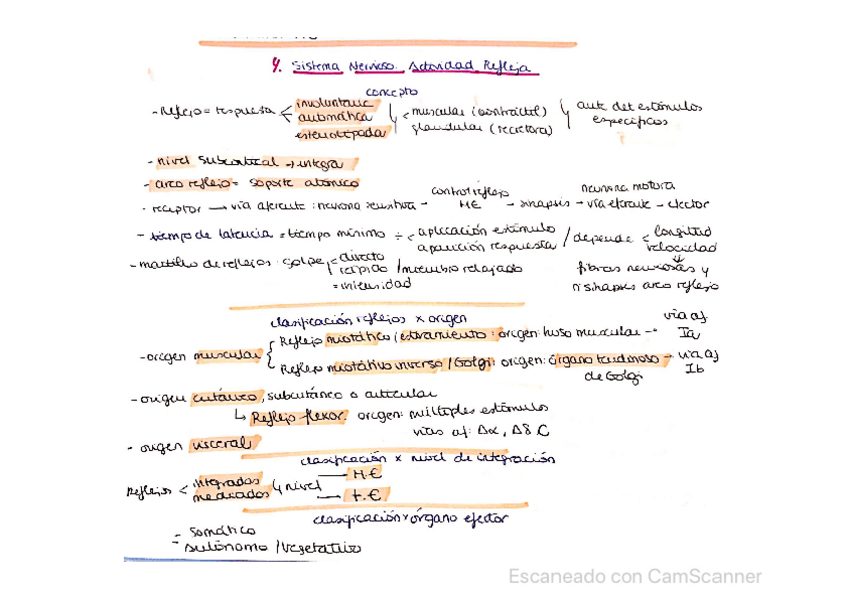 4. Sistema Nervioso. Actividad Refleja
concepto
- Reflejo = respuesta < involuntaria automática estereotipada < muscular (contráctil) glandular (secretora) ante det estímulos específicos
- nivel subcortical → integra
- arco reflejo = soporte atómico
· receptor → vía aferente: neurona sensitiva - control reflejo ME - sinapsis - vía eferente neurona motora - efector
- tiempo de latencia = tiempo mínimo ÷ < aplicación estímulo aparición respuesta / depende < longitud velocidad
fibras nerviosas y nº sinapsis arco reflejo
- martillo de reflejos: golpe < directo rápido / miembro relajado
= intensidad
clasificación reflejos x origen
- origen muscular { Reflejo miotático / estiramiento: origen: huso muscular - vía af Ia
Reflejo miotático inverso / Golgi: origen: órgano tendinoso de Golgi → vía af Ib
- origen cutáneo, subcutáneo o articular
↳ Reflejo flexor. origen: múltiples estímulos
vías af: Aα, Aδ C
- origen visceral
clasificación x nivel de integración
Reflejos < integrados mediados nivel — M.E
— t.E
clasificación x órgano efector
- somático
- autónomo / vegetativo
Escaneado con CamScanner